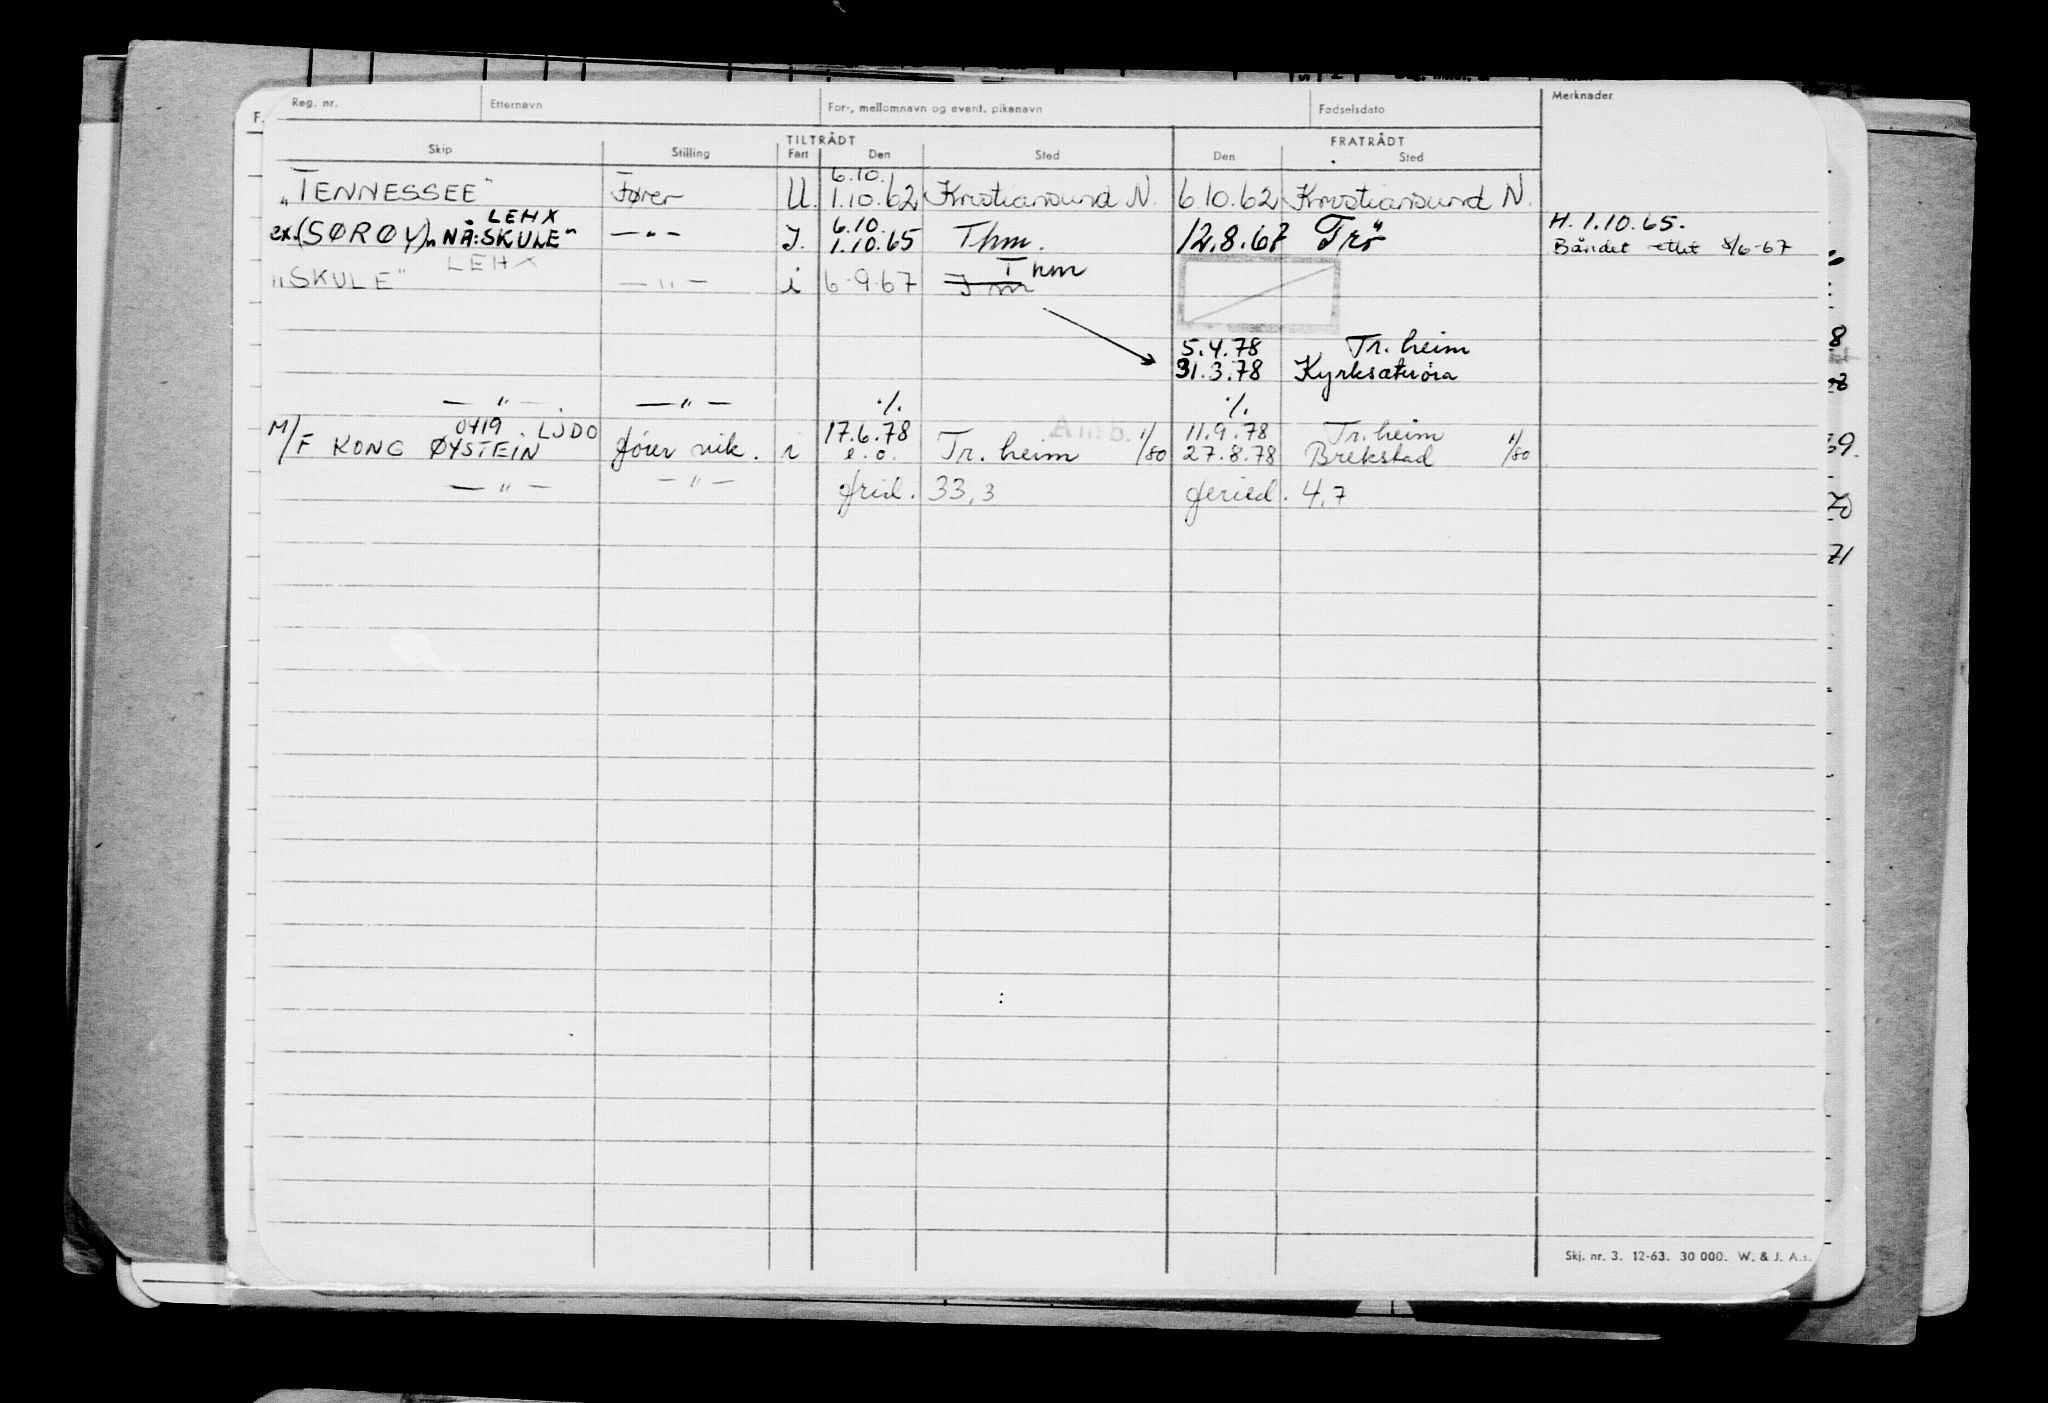 Reg. nr. Etternavn For-, mellomnavn og event. pikenavn Fødselsdato Merknader
F.
TILTRÅDT FRATRÅDT
Skip Stilling Fart Den Sted Den Sted
6.10.
„TENNESSEE" Fører U. 1.10.62 Kristiansund N. 6.10.62 Kristiansund N.
LEHX 6.10. H. 1.10.65.
ex. (SØRØY) „NÅ: SKULE" — " — I. 1.10.65 Thm. 12.8.67 Trö Båndet 8/6-67
LEHX Thm
"SKULE" — " — i 6-9-67
5.4.78 Tr.heim
31.3.78 Kyrksæterøra
— " — — " — ./. ./.
0419 LJDO 17.6.78 Amb. 1/80 11.9.78 Tr.heim 1/80
M/F KONG ØYSTEIN fører vik. i e.o. Tr.heim 27.8.78 Brekstad
— " — — " — frid. 33,3 feried. 4,7
8
69.
70
71
Skj. nr. 3. 12-63. 30 000. W. & J. A.s.